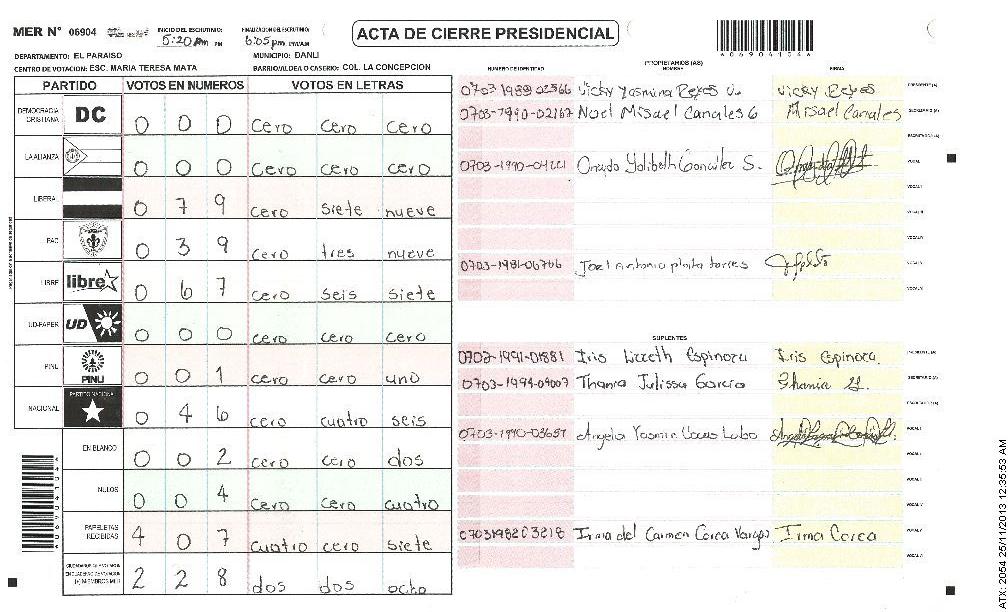 MER N° 06904 INICIO DEL ESCRUTINIO: 5:20 pm PM FINALIZACION DEL ESCRUTINIO: 6:05 pm PM/AM
ACTA DE CIERRE PRESIDENCIAL
DEPARTAMENTO: EL PARAISO MUNICIPIO: DANLI
CENTRO DE VOTACION: ESC. MARIA TERESA MATA BARRIO/ALDEA O CASERIO: COL. LA CONCEPCION
PARTIDO VOTOS EN NUMEROS VOTOS EN LETRAS
DEMOCRACIA CRISTIANA DC 0 0 0 cero cero cero
LA ALIANZA 0 0 0 cero cero cero
LIBERAL 0 7 9 cero siete nueve
PAC 0 3 9 cero tres nueve
LIBRE libre 0 6 7 cero seis siete
UD-FAPER UD 0 0 0 cero cero cero
PINU PINU 0 0 1 cero cero uno
NACIONAL PARTIDO NACIONAL 0 4 6 cero cuatro seis
EN BLANCO 0 0 2 cero cero dos
NULOS 0 0 4 cero cero cuatro
PAPELETAS RECIBIDAS 4 0 7 cuatro cero siete
2 2 8 dos dos ocho
PROPIETARIOS (AS)
NUMERO DE IDENTIDAD NOMBRE FIRMA
0703 1989 02566 Vicky Yasmina Reyes U. Vicky Reyes PRESIDENTE (A)
0703-1990-02167 Noel Misael Canales G Misael Canales SECRETARIO (A)
ESCRUTADOR (A)
0703-1990-04221 Yolibeth González S. VOCAL I
VOCAL II
VOCAL III
VOCAL IV
0703-1981-06766 Joel Antonio torres VOCAL V
SUPLENTES
0703-1991-01881 Iris Lizeth Espinoza Iris Espinoza PRESIDENTE (A)
0703-1994-04007 Thania Julissa Garcia Thania SECRETARIO (A)
ESCRUTADOR (A)
0703-1990-03657 Angela Yasmin Lobo VOCAL I
0703198203218 Irma del Carmen Cerca Vargas Irma Cerca
ATX: 2054 25/11/2013 12:35:53 AM